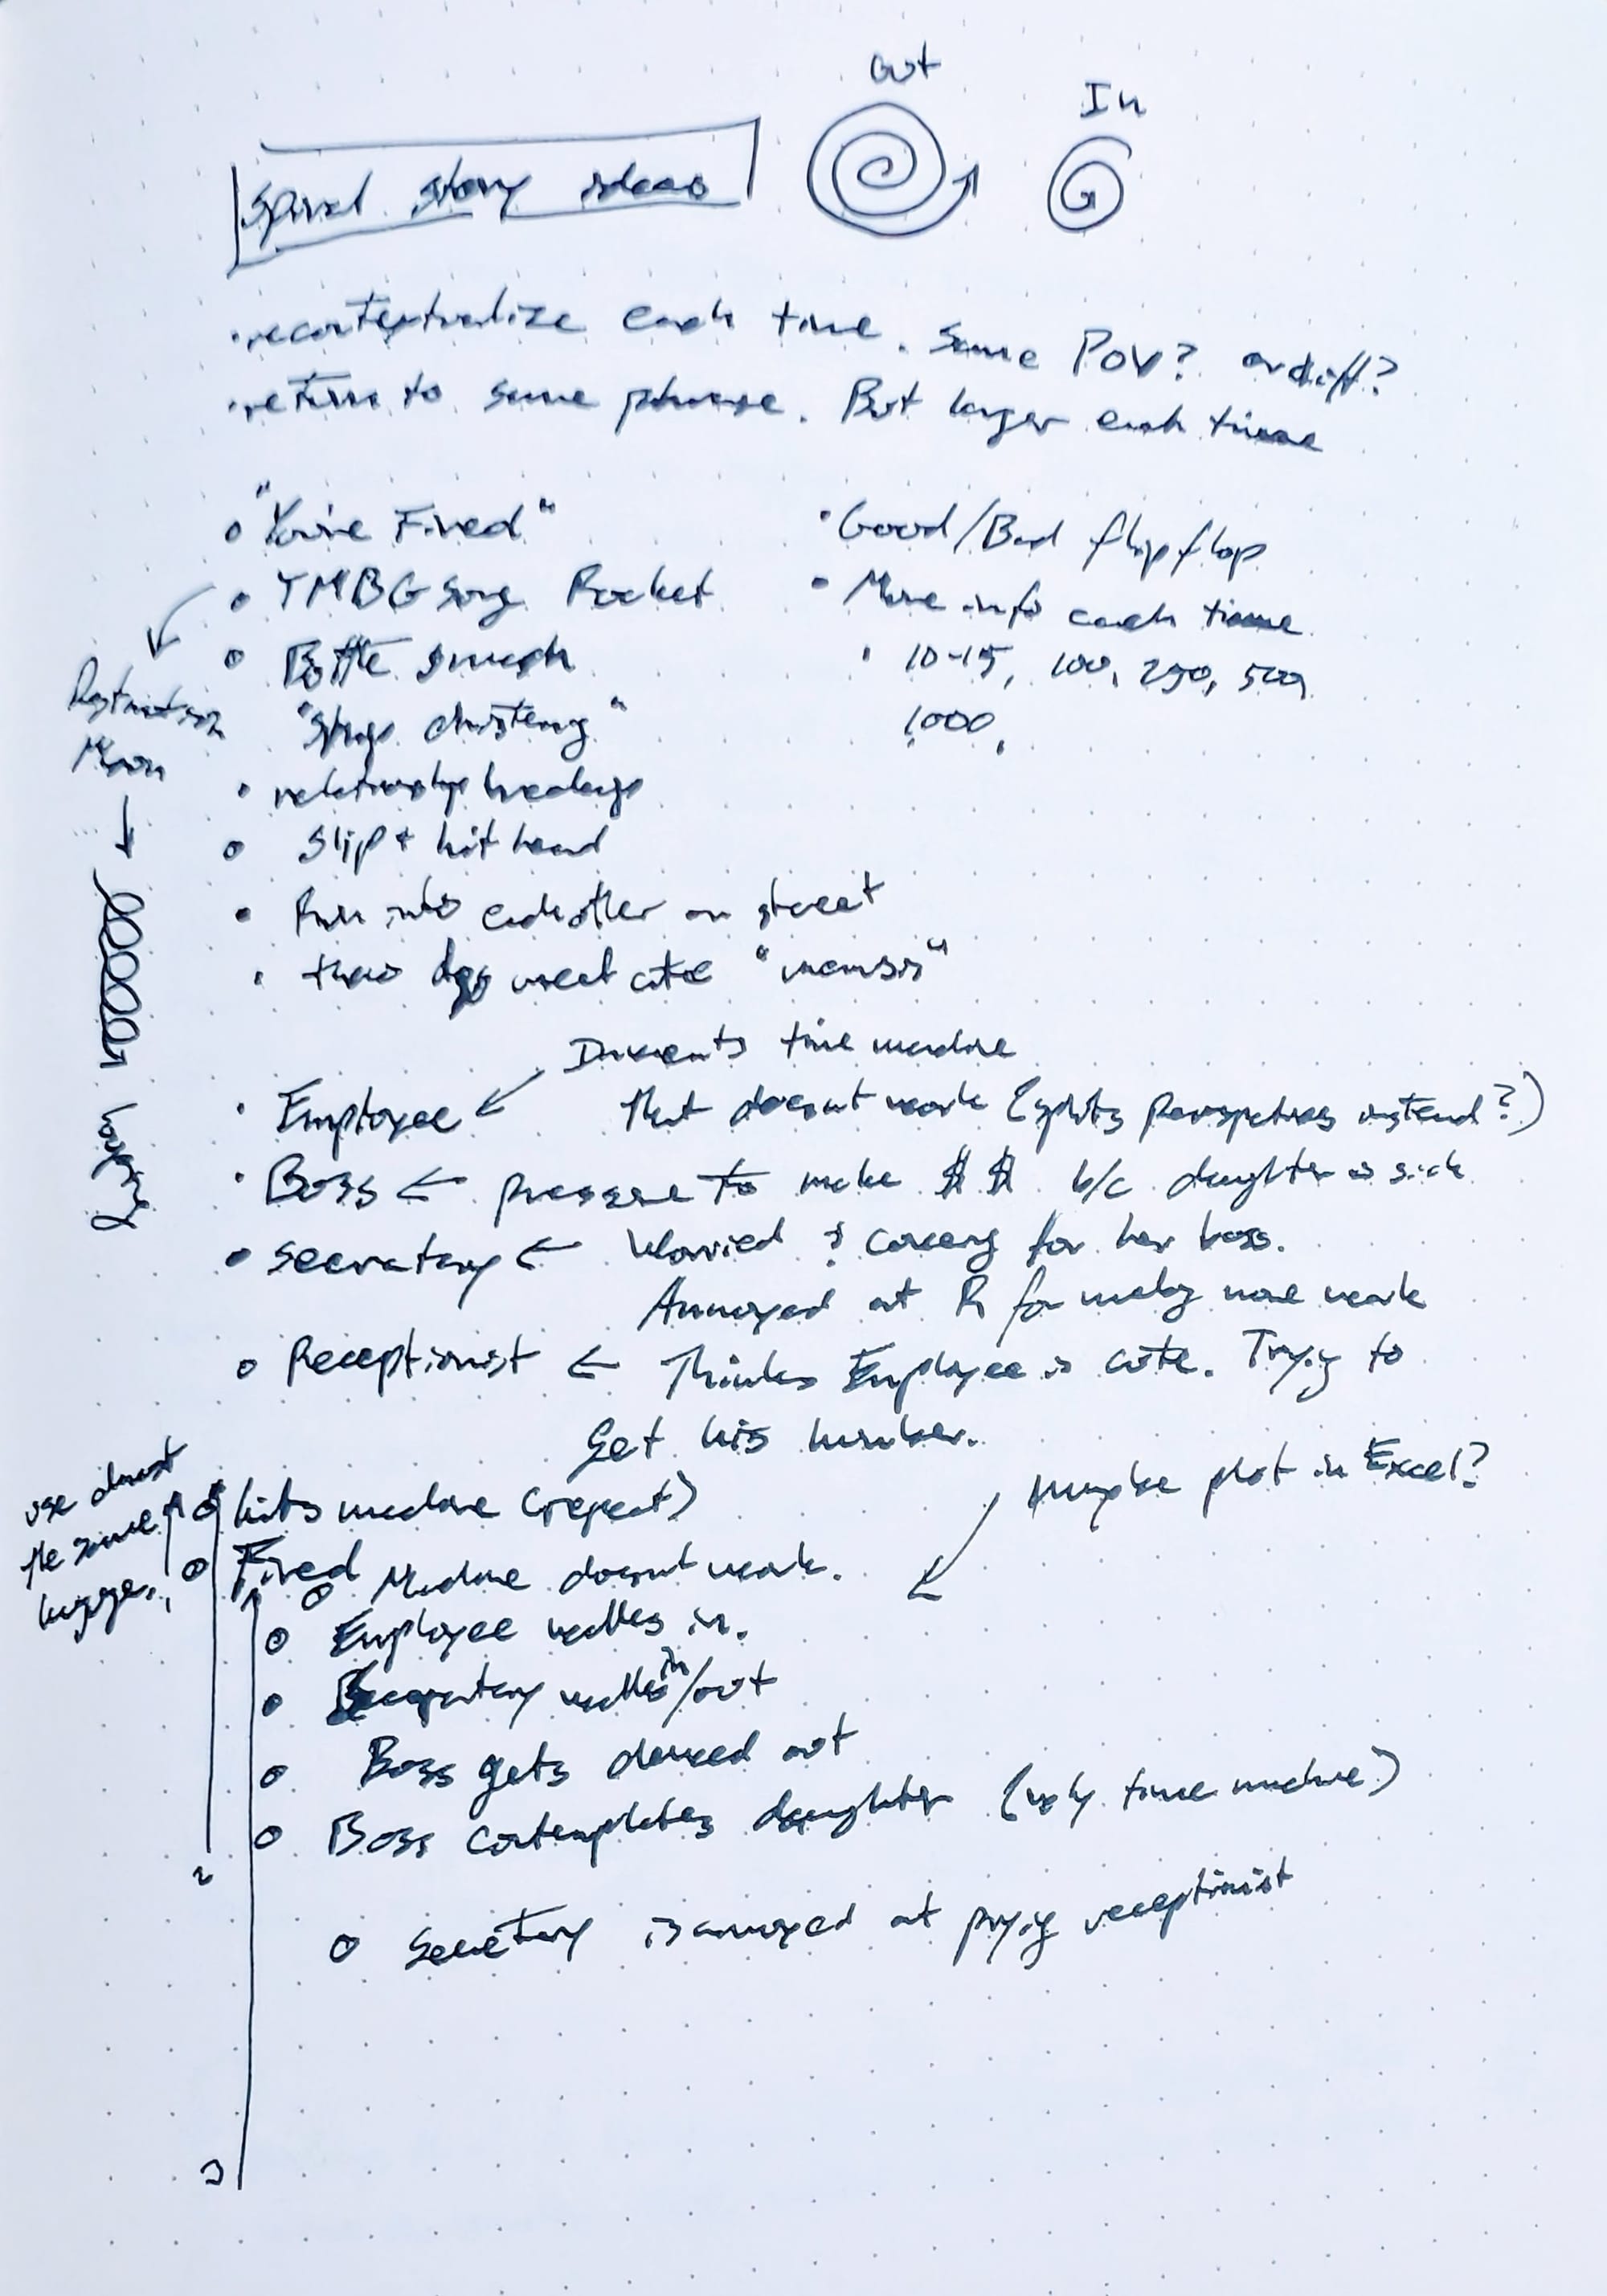 Out
In
Spiral story ideas
recontextualize each time. Same POV? or diff?
return to same phrase. But larger each time
"You're Fired"
TMBG song Rocket
Destination
Moon
Bottle smash
"Stage
relationship breakup
Slip + hit head
Run into each other on street
two dogs meet cute
Good/Bad flip flop
More info each time
10-15, 100, 250, 500,
1000,
Invents time machine
Employee
that doesnt work (splits perspectives instead?)
Boss ← pressure to make $$ b/c daughter is sick
secretary ← Worried & caring for her boss.
Annoyed at R for making more work
Receptionist ← Thinks Employee is cute. Trying to
Get his number.
maybe plot in Excel?
use almost
the same
hits machine (repeat)
Fired
Machine doesnt work.
Employee walks in.
Secretary walks in/out
Boss gets
out
Boss contemplates daughter (why time machine)
Secretary is annoyed at prying receptionist
2
3